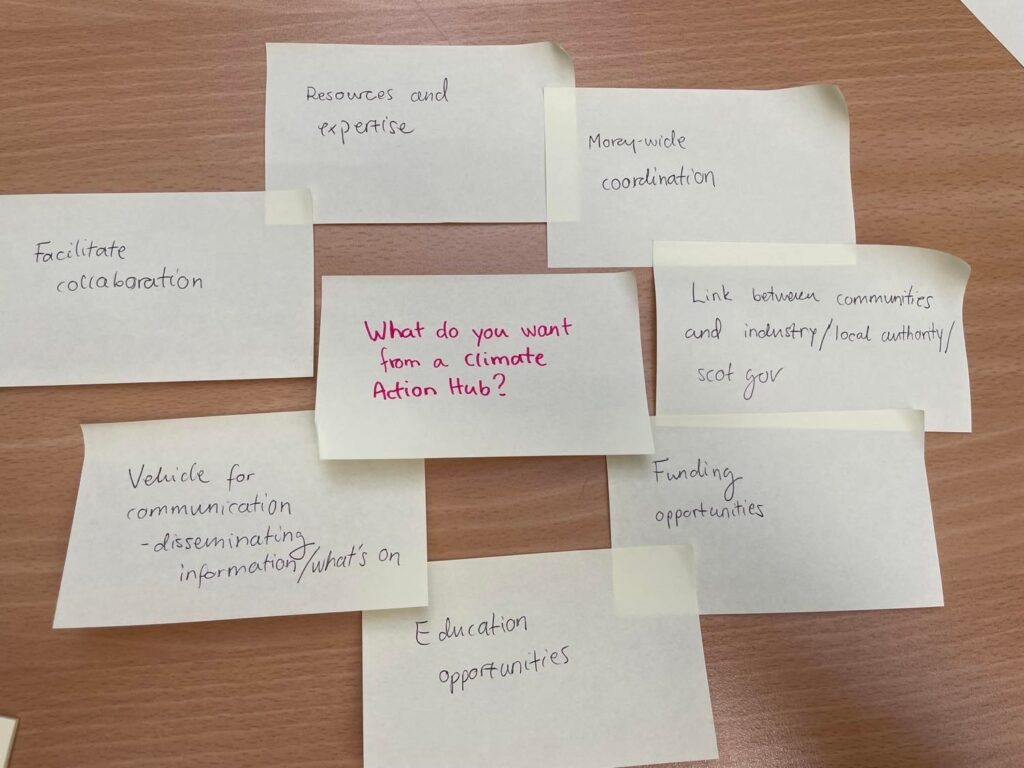 Resources and
expertise
Moray-wide
coordination
Facilitate
collaboration
Link between communities
and industry/local authority/
scot gov
What do you want
from a climate
Action Hub?
Vehicle for
communication
-disseminating
information/what's on
Funding
opportunities
Education
opportunities